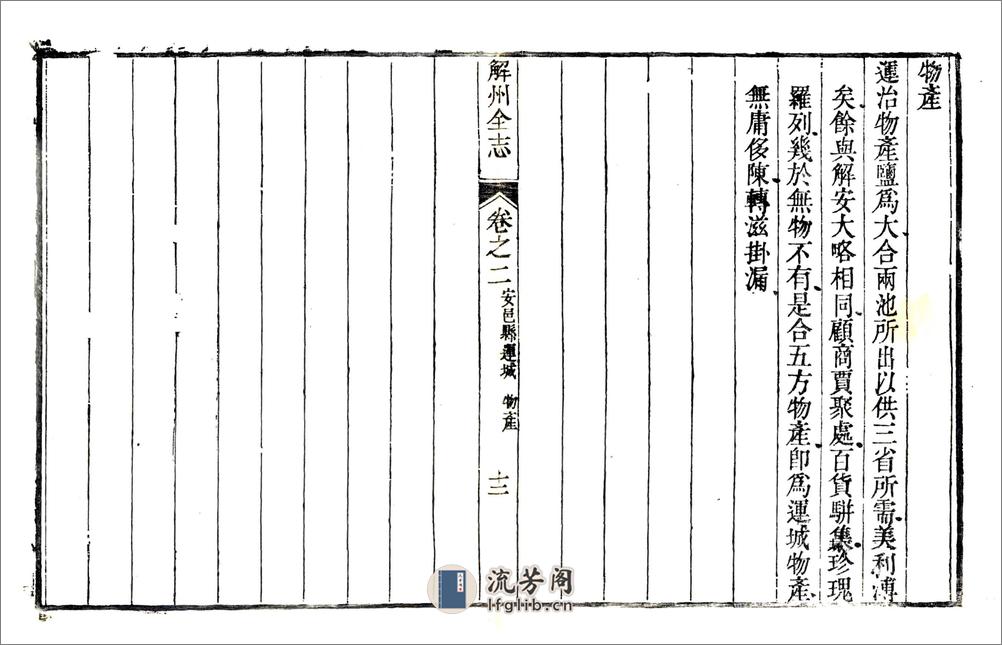 物產
運治物產鹽爲大合兩池所出以供三省所需美利溥
矣餘與解安大略相同顧商賈聚處百貨駢集珍瑰
羅列幾於無物不有是合五方物產卽爲運城物產
無庸侈陳轉滋掛漏
解州全志
卷之二
安邑縣運城 物產
十二
流芳阁
lfglib.cn